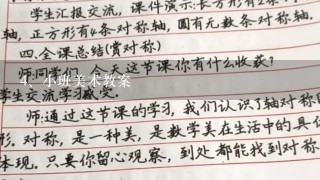 学生汇报交流,课件演示:长方形有2条
轴,正方形有4条对称轴,圆有无数条对称轴.
四.全课总结(赏对称)
师:同学们,今天这节课你有什么收获?
4、小班美术教案
学生交流学习感受.
师:通过这节课的学习,我们认识了轴对称
形.对称,是一种美,是数学美在生活中的具
体现.只要你留心观察,到处都能找到对称